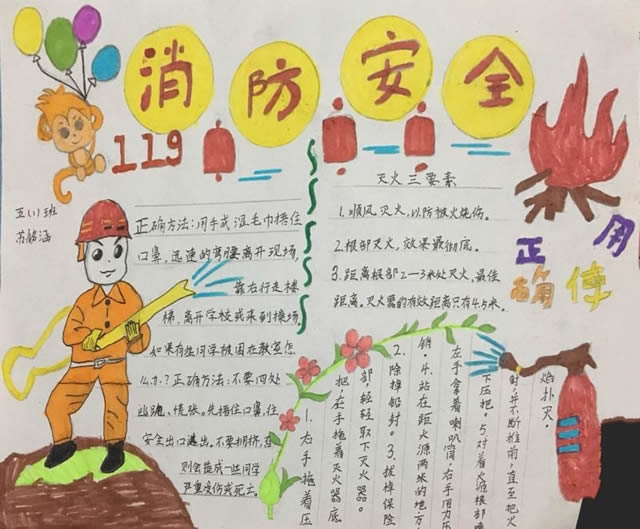 消防安全
119
五(1)班
正确方法:用手或湿毛巾捂住
口鼻,迅速的弯腰离开现场,
靠右行走楼
梯,离开学校或来到操场,
如果有些同学被困在教室怎
么办?正确方法:不要四处
逃跑、慌张。先捂住口鼻,往
安全出口逃出。不要拥挤,否
则会造成一些同学
严重受伤或死去。
灭火三要素
1.顺风灭火,以防被火烧伤。
2.根部灭火,效果最彻底。
3.距离根部2—3米处灭火,最佳
距离。灭火器的有效距离只有4.5米。
正确使用
1.右手拖着压
把,左手拖着灭火器底
部,轻轻取下灭火器。
2.除掉铅封。3.拔掉保险
销。4.站在距火源两米的地方
左手拿着喇叭筒,右手用力压
下压把。5对着火源根部喷
时,并不断推前,直至把火
焰扑灭。